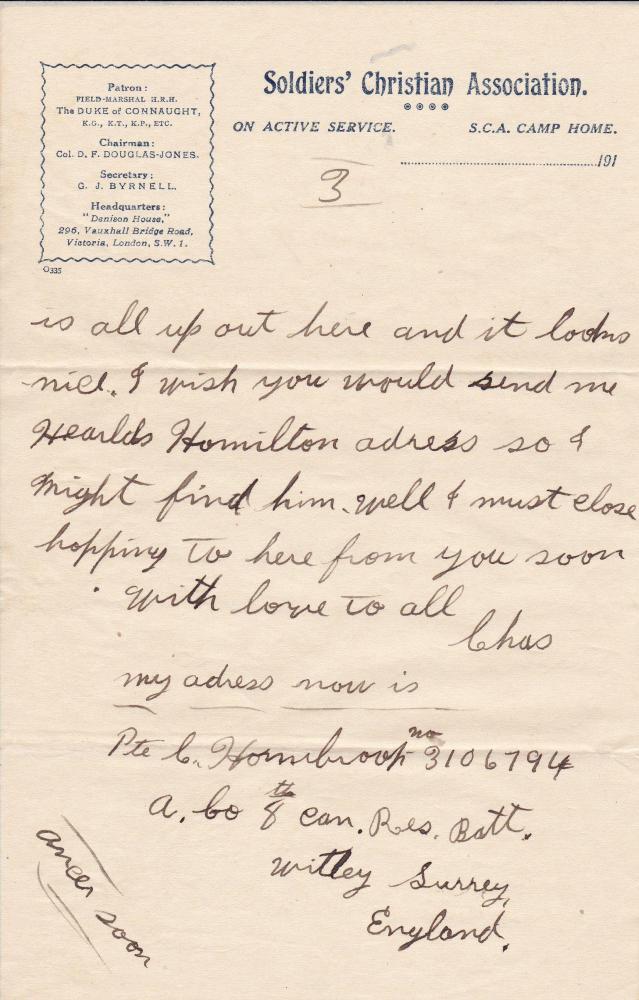 Patron:
FIELD-MARSHAL H.R.H.
The DUKE of CONNAUGHT,
K.G., K.T., K.P., ETC.
Chairman:
Col. D. F. DOUGLAS-JONES.
Secretary:
G. J. BYRNELL.
Headquarters:
"Denison House,"
296, Vauxhall Bridge Road,
Victoria, London, S.W. 1.
O335
Soldiers' Christian Association.
ON ACTIVE SERVICE. S.C.A. CAMP HOME.
191
3
is all up out here and it looks
nice. I wish you would send me
Hearlds Homilton adress so I
might find him. well I must close
hopping to here from you soon
with love to all
Chas
my adress now is
Pte C. Hornibrook no 3106794
A. Co 8th Can. Res. Batt.
Witley Surrey,
England.
ancer soon